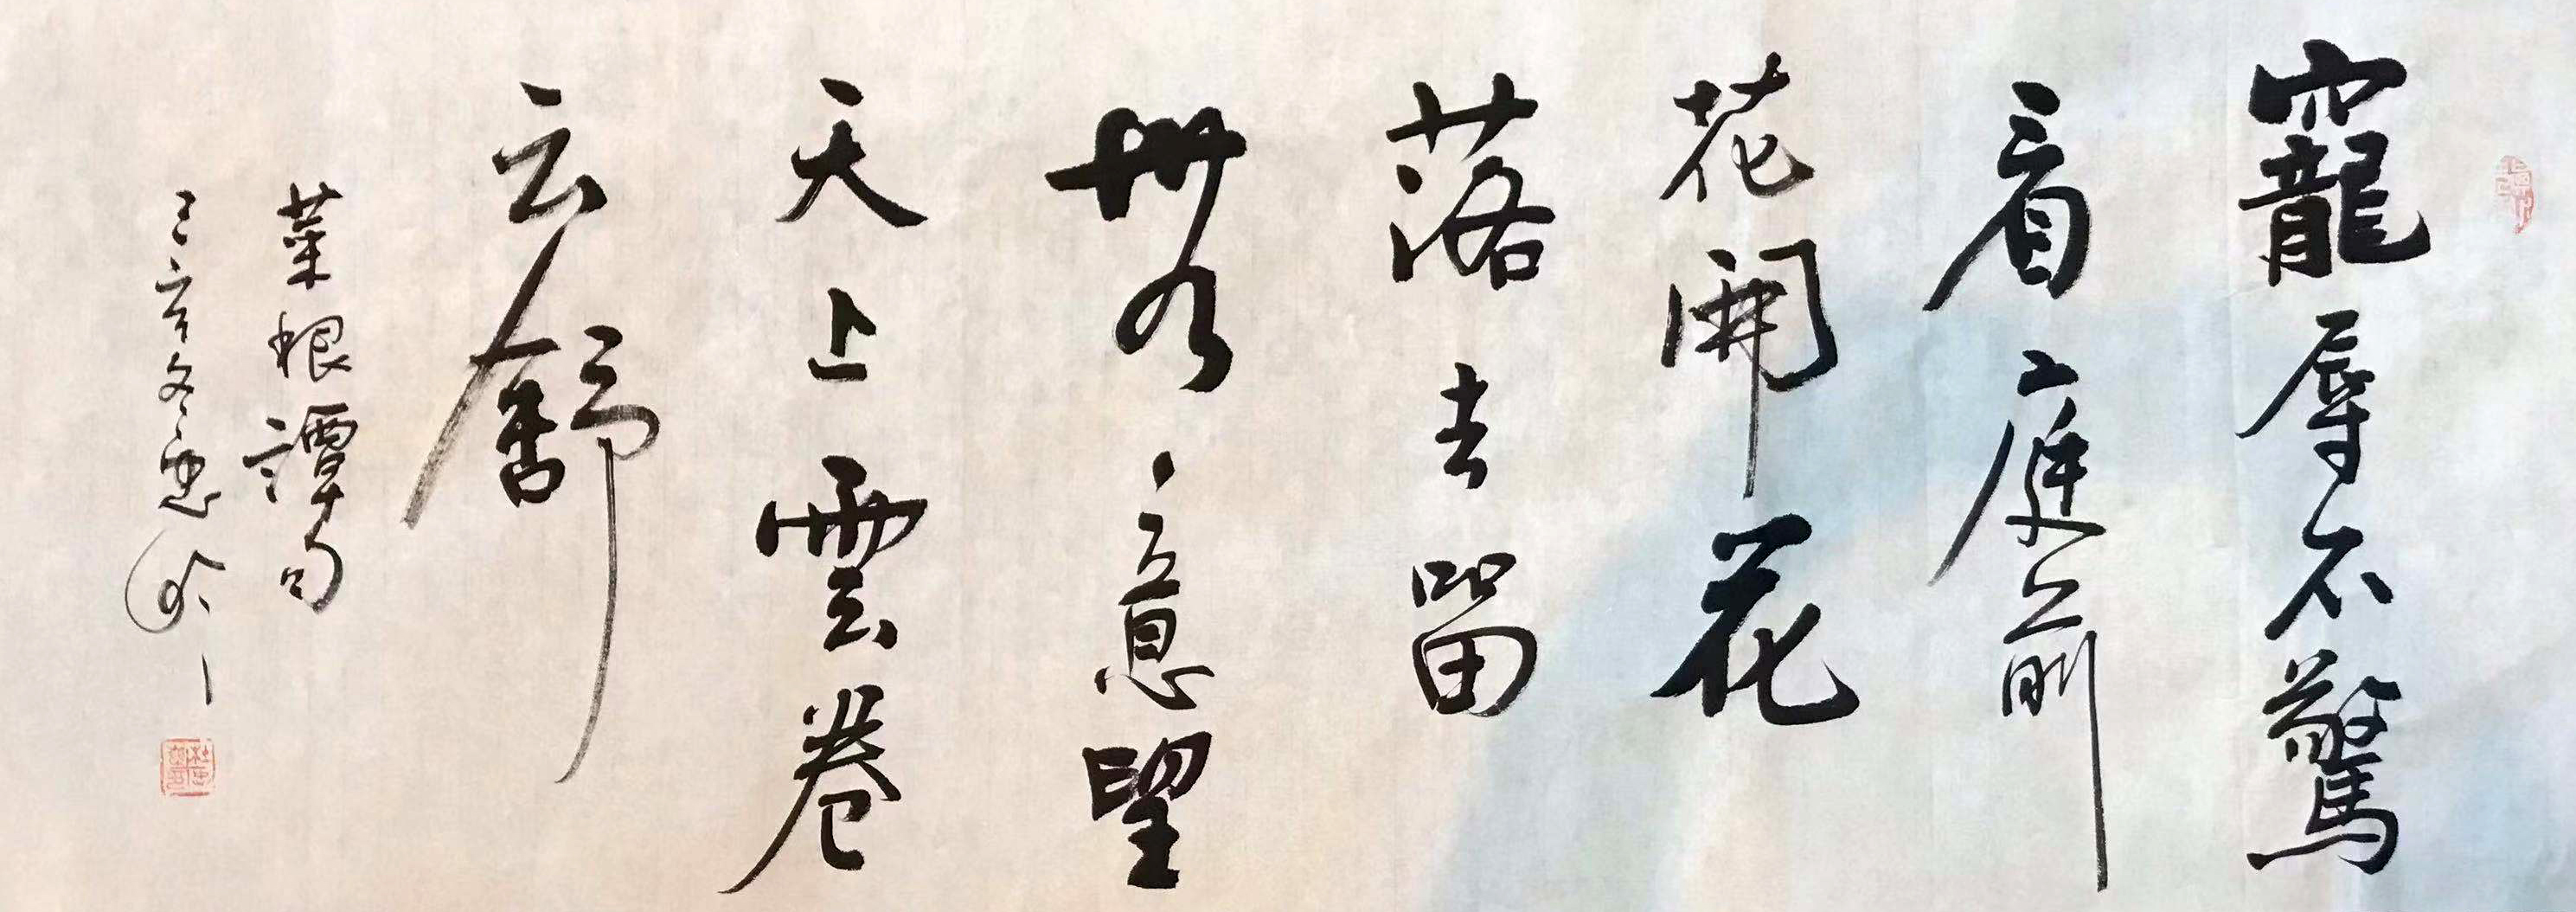 寵辱不驚
看庭前
花開花
落去留
無意望
天上雲卷
云舒
菜根譚句
己亥冬忠